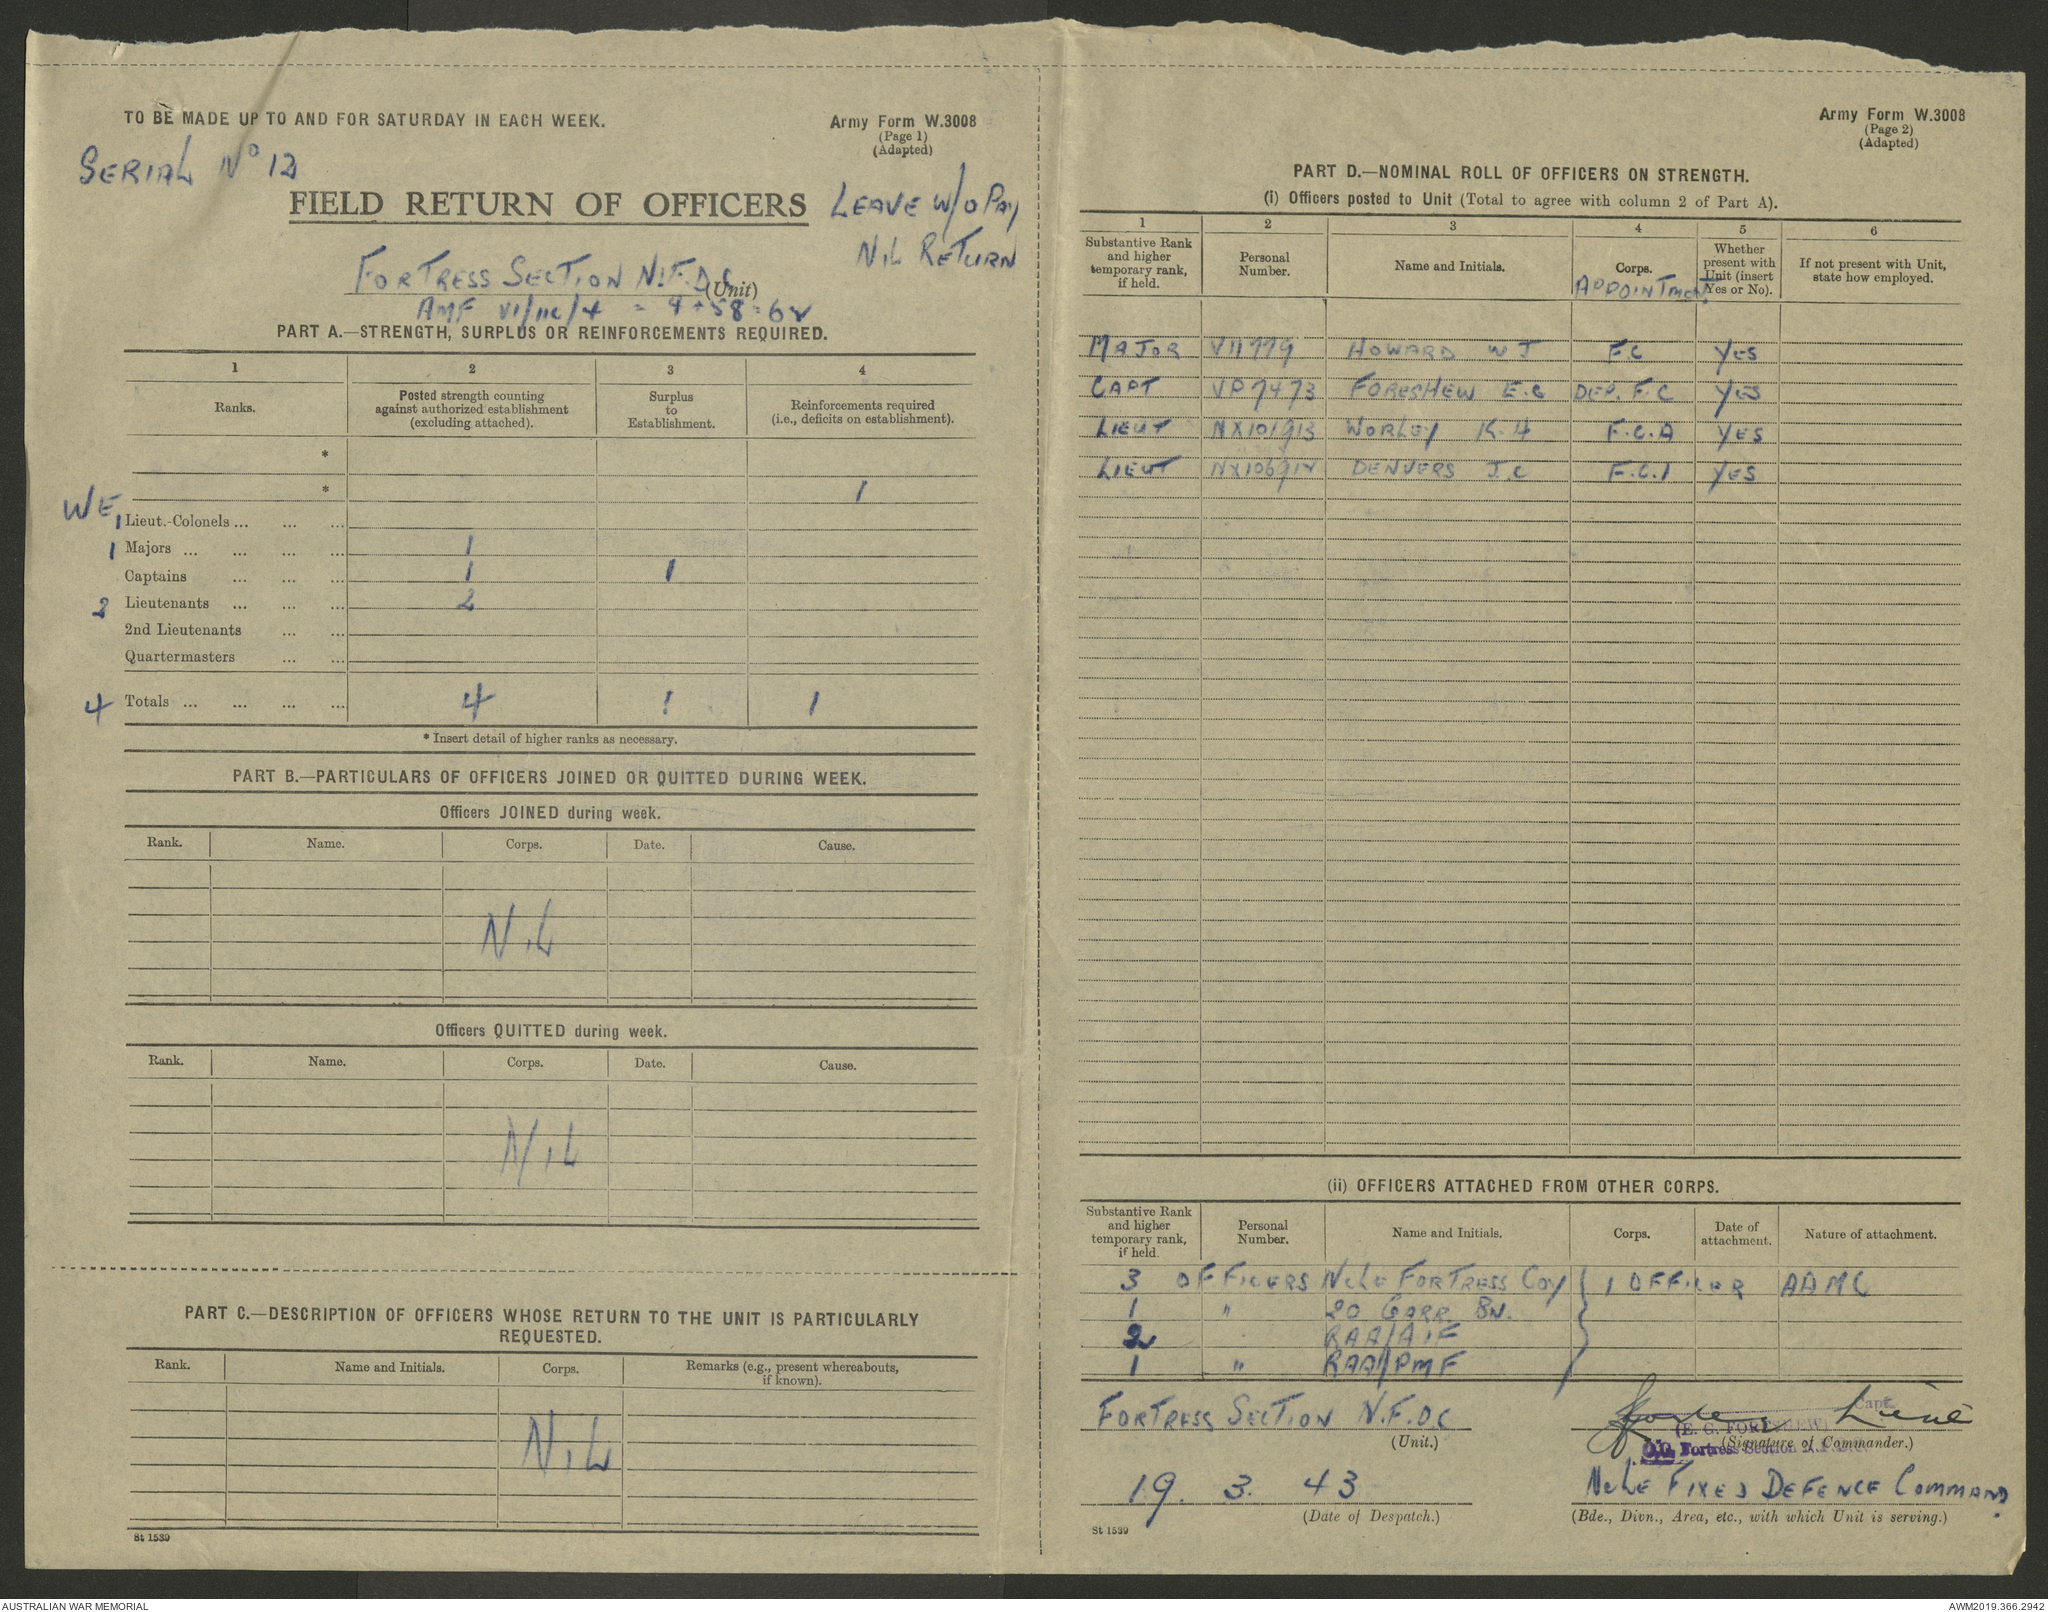 TO BE MADE UP TO AND FOR SATURDAY IN EACH WEEK.
Army Form W.3008
(Page 1)
(Adapted)
SERIAL No 12
FIELD RETURN OF OFFICERS
LEAVE W/O PAY
NIL RETURN
FORTRESS SECTION N.F.D.C.
(Unit)
AMF VI/11C/4 = 4 + 58 = 62
PART A.—STRENGTH, SURPLUS OR REINFORCEMENTS REQUIRED.
1 2 3 4
Ranks. Posted strength counting against authorized establishment (excluding attached). Surplus to Establishment. Reinforcements required (i.e., deficits on establishment).
*
* 1
WE
1 Lieut.-Colonels ... ... ...
1 Majors ... ... ... ... 1
Captains ... ... ... 1 1
2 Lieutenants ... ... ... 2
2nd Lieutenants ... ...
Quartermasters ... ...
4 Totals ... ... ... ... 4 1 1
* Insert detail of higher ranks as necessary.
PART B.—PARTICULARS OF OFFICERS JOINED OR QUITTED DURING WEEK.
Officers JOINED during week.
Rank. Name. Corps. Date. Cause.
NiL
Officers QUITTED during week.
Rank. Name. Corps. Date. Cause.
NiL
PART C.—DESCRIPTION OF OFFICERS WHOSE RETURN TO THE UNIT IS PARTICULARLY
REQUESTED.
Rank. Name and Initials. Corps. Remarks (e.g., present whereabouts, if known).
NiL
St 1539
Army Form W.3008
(Page 2)
(Adapted)
PART D.—NOMINAL ROLL OF OFFICERS ON STRENGTH.
(i) Officers posted to Unit (Total to agree with column 2 of Part A).
1 2 3 4 5 6
Substantive Rank and higher temporary rank, if held. Personal Number. Name and Initials. Corps. Whether present with Unit (insert Yes or No). If not present with Unit, state how employed.
APPOINTMENT
MAJOR V11779 HOWARD W J F.C YES
CAPT VP7473 FORESHEW E.G DEP. F.C YES
LIEUT NX101913 WORLEY K.H F.C.A YES
LIEUT NX106912 DENVERS J.C F.C.1 YES
(ii) OFFICERS ATTACHED FROM OTHER CORPS.
Substantive Rank and higher temporary rank, if held. Personal Number. Name and Initials. Corps. Date of attachment. Nature of attachment.
3 OFFICERS NCLE FORTRESS COY 1 OFFICER AAMC
1 " 20 GARR. BN.
2 RAA/AIF
1 " RAA/PMF
FORTRESS SECTION N.F.D.C
(Unit.)
Capt.
(E. G. FORESHEW)
(Signature of Commander.)
O.C. Fortress Section N.F.D.C.
19. 3. 43
(Date of Despatch.)
NCLE FIXED DEFENCE COMMAND.
(Bde., Divn., Area, etc., with which Unit is serving.)
St 1539
AUSTRALIAN WAR MEMORIAL
AWM2019.366.2942